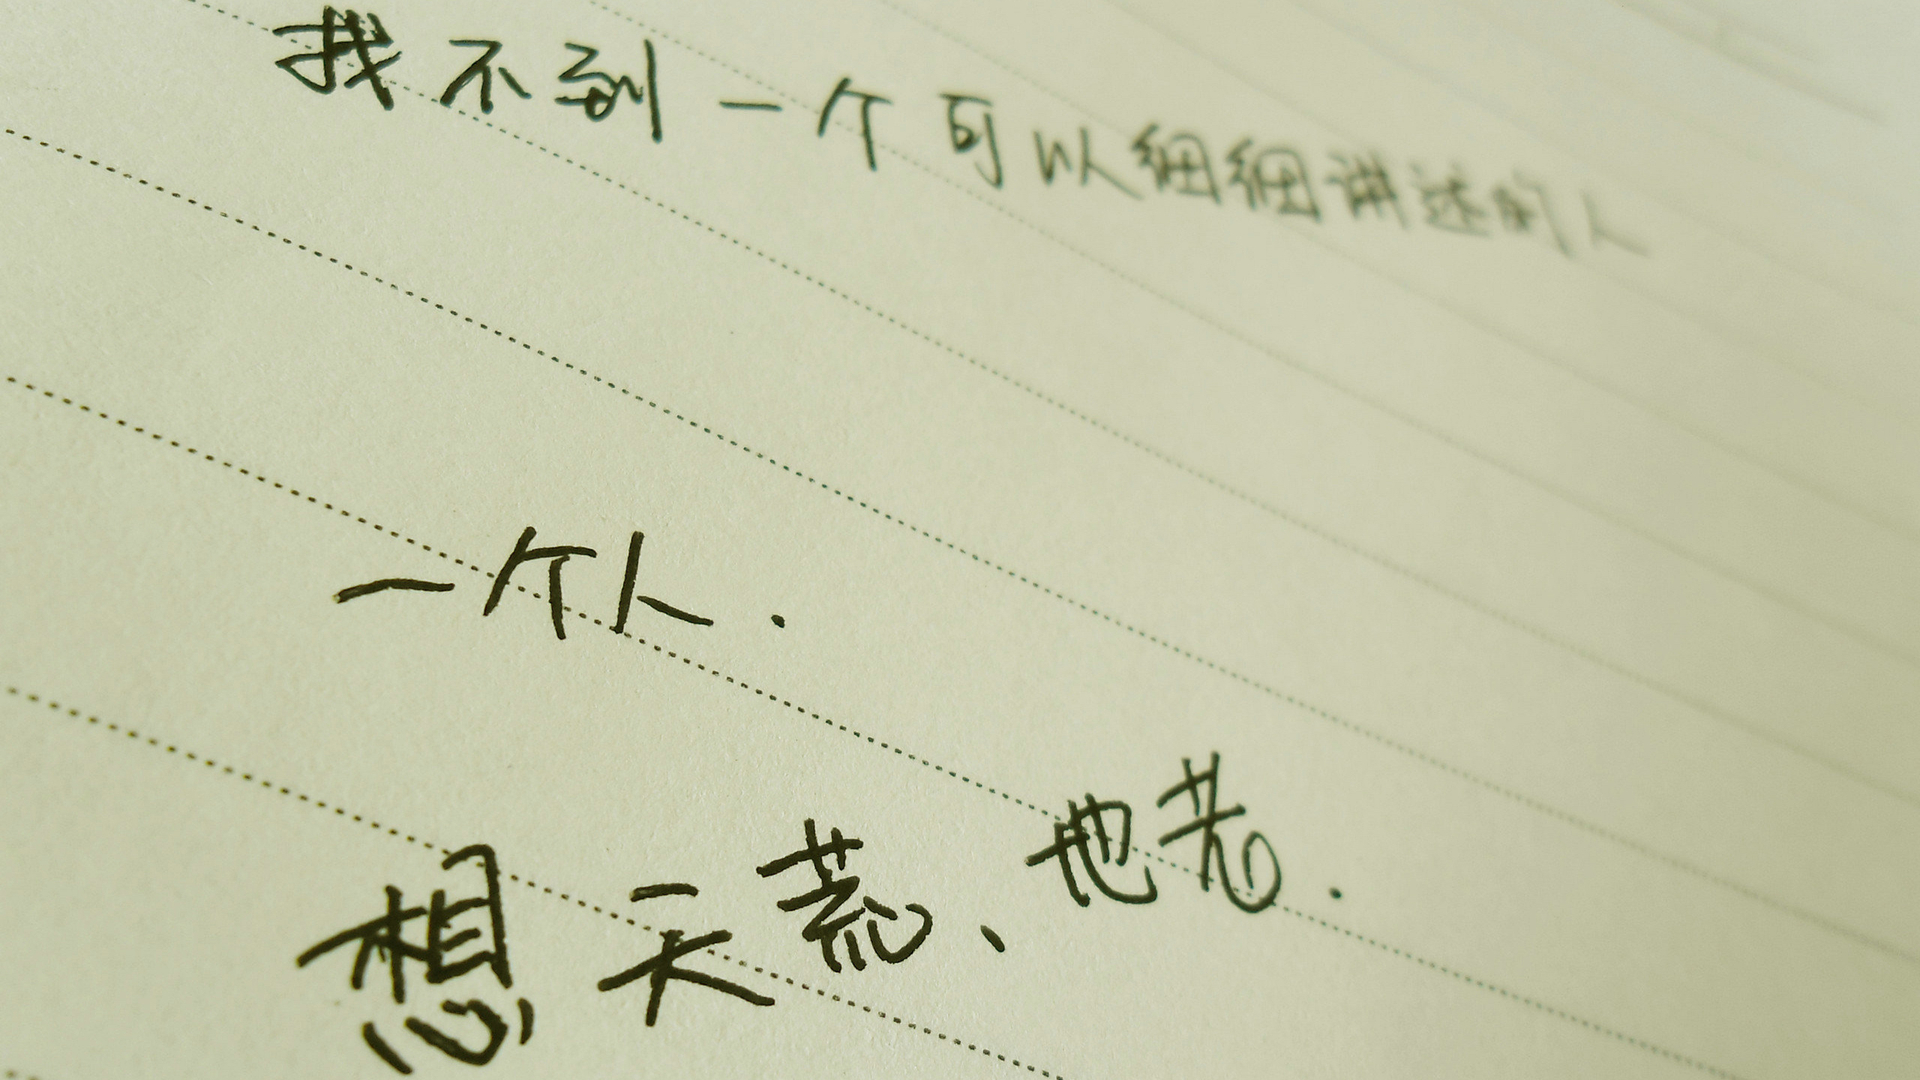 找不到一个可以细细讲述的人
一个人.
想天荒、地老.